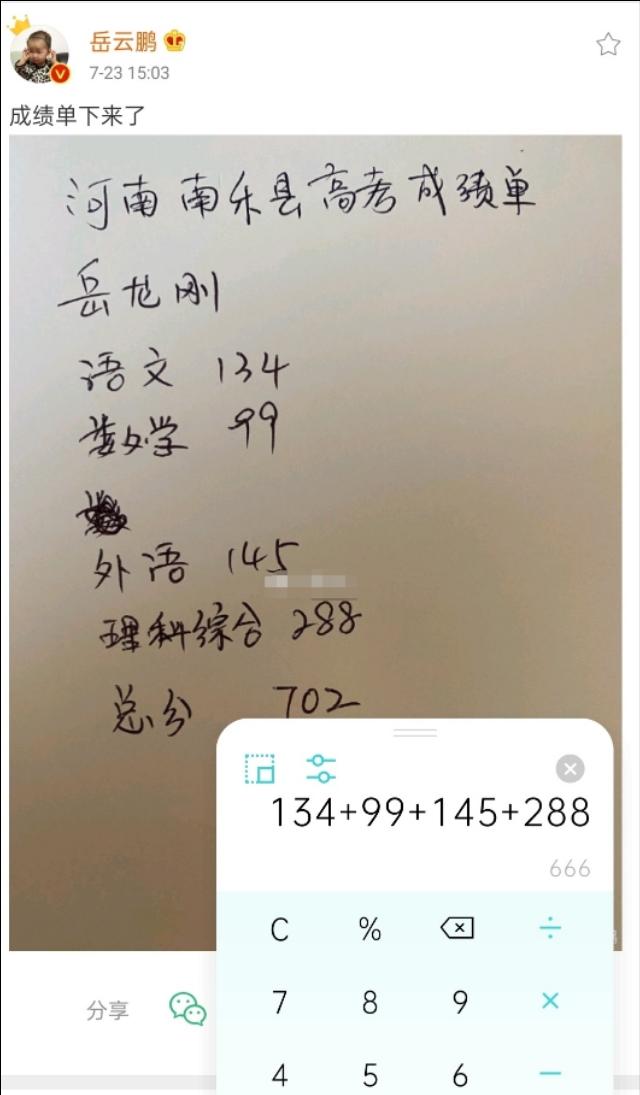 岳云鹏
7-23 15:03
成绩单下来了
河南南乐县高考成绩单
岳龙刚
语文 134
数学 99
外语 145
理科综合 288
总分 702
134+99+145+288
666
C % ÷
7 8 9 ×
分享
4 5 6 −